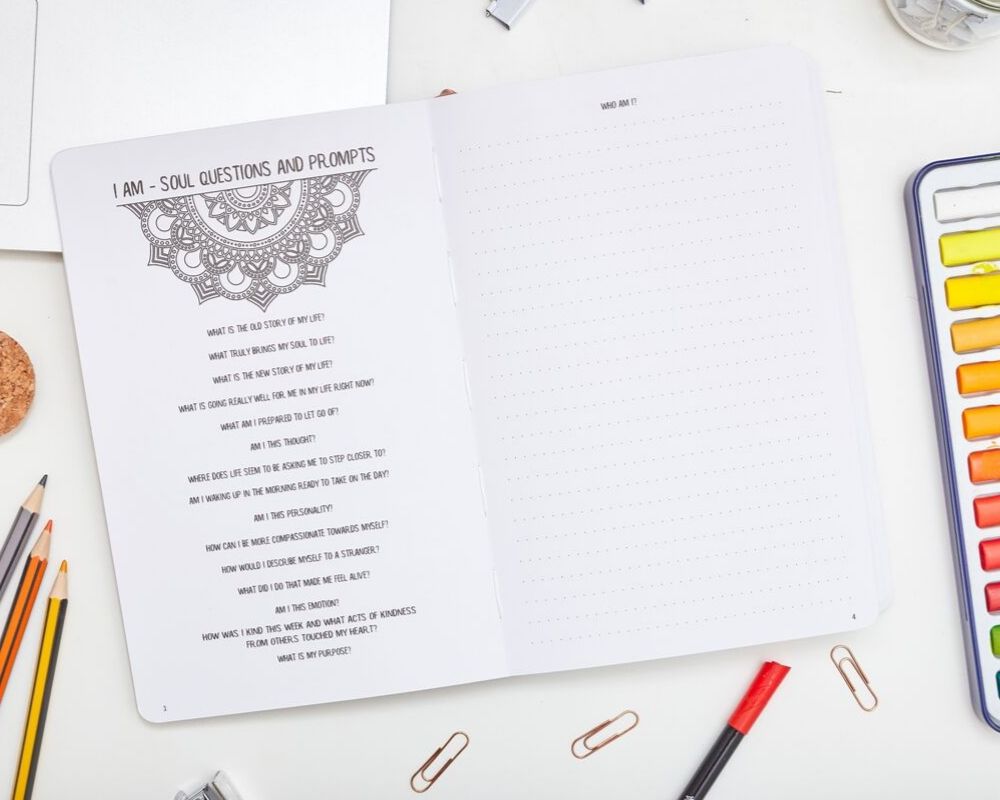 I AM - SOUL QUESTIONS AND PROMPTS
WHAT IS THE OLD STORY OF MY LIFE?
WHAT TRULY BRINGS MY SOUL TO LIFE?
WHAT IS THE NEW STORY OF MY LIFE?
WHAT IS GOING REALLY WELL FOR ME IN MY LIFE RIGHT NOW?
WHAT AM I PREPARED TO LET GO OF?
AM I THIS THOUGHT?
WHERE DOES LIFE SEEM TO BE ASKING ME TO STEP CLOSER TO?
AM I WAKING UP IN THE MORNING READY TO TAKE ON THE DAY?
AM I THIS PERSONALITY?
HOW CAN I BE MORE COMPASSIONATE TOWARDS MYSELF?
HOW WOULD I DESCRIBE MYSELF TO A STRANGER?
WHAT DID I DO THAT MADE ME FEEL ALIVE?
AM I THIS EMOTION?
HOW WAS I KIND THIS WEEK AND WHAT ACTS OF KINDNESS
FROM OTHERS TOUCHED MY HEART?
WHAT IS MY PURPOSE?
1
WHO AM I?
4